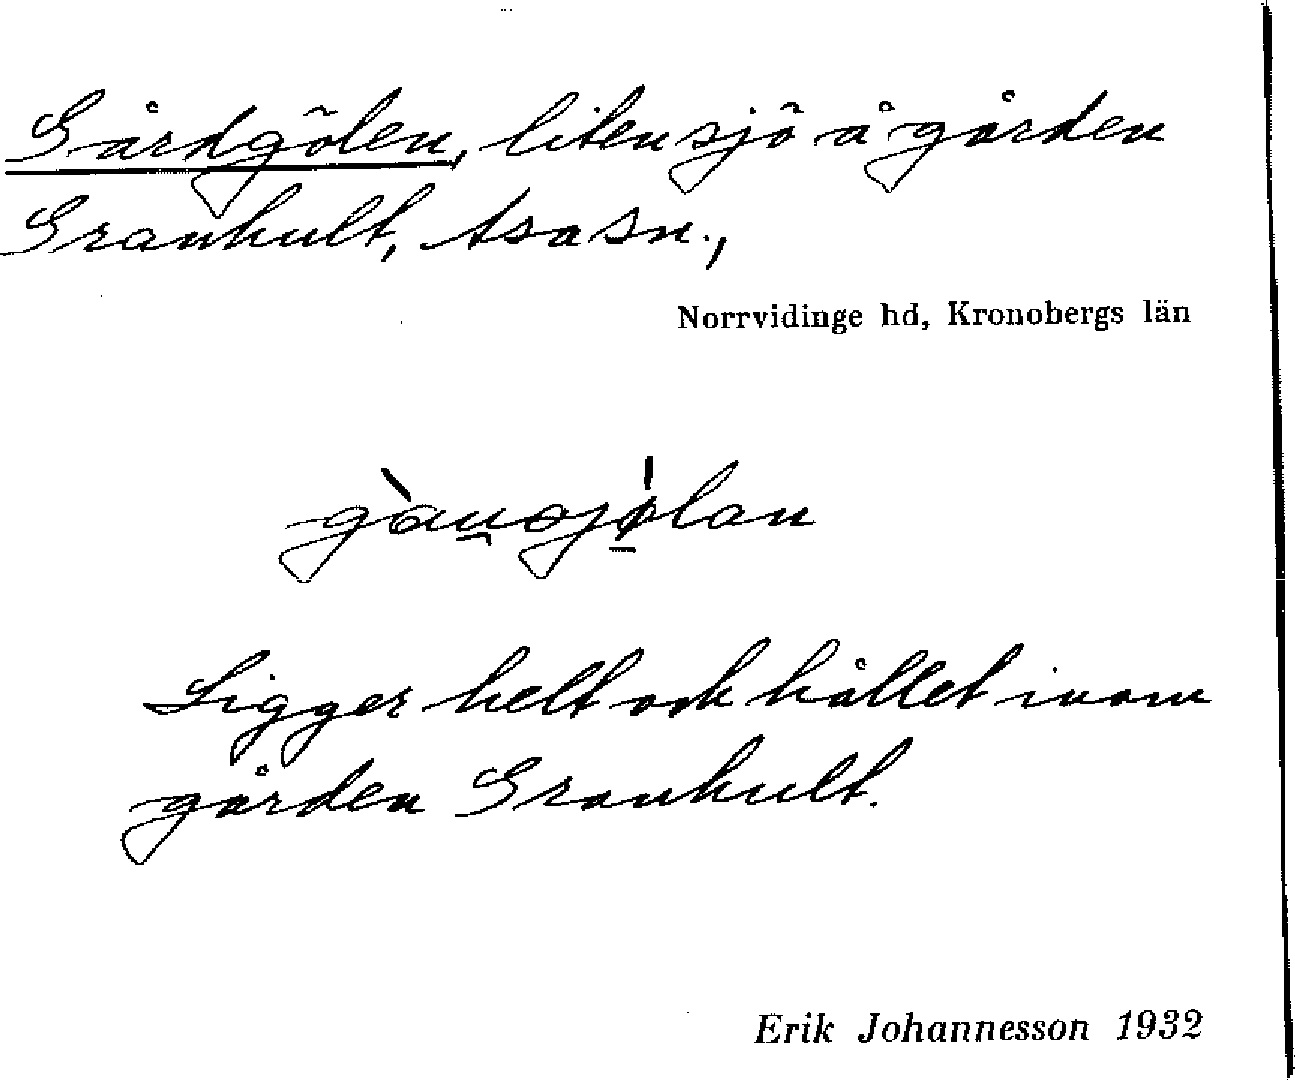 Gårdgölen, liten sjö å gården
Granhult, Asa sn.,
Norrvidinge hd, Kronobergs län
Ligger helt och hållet inom
gården Granhult.
Erik Johannesson 1932